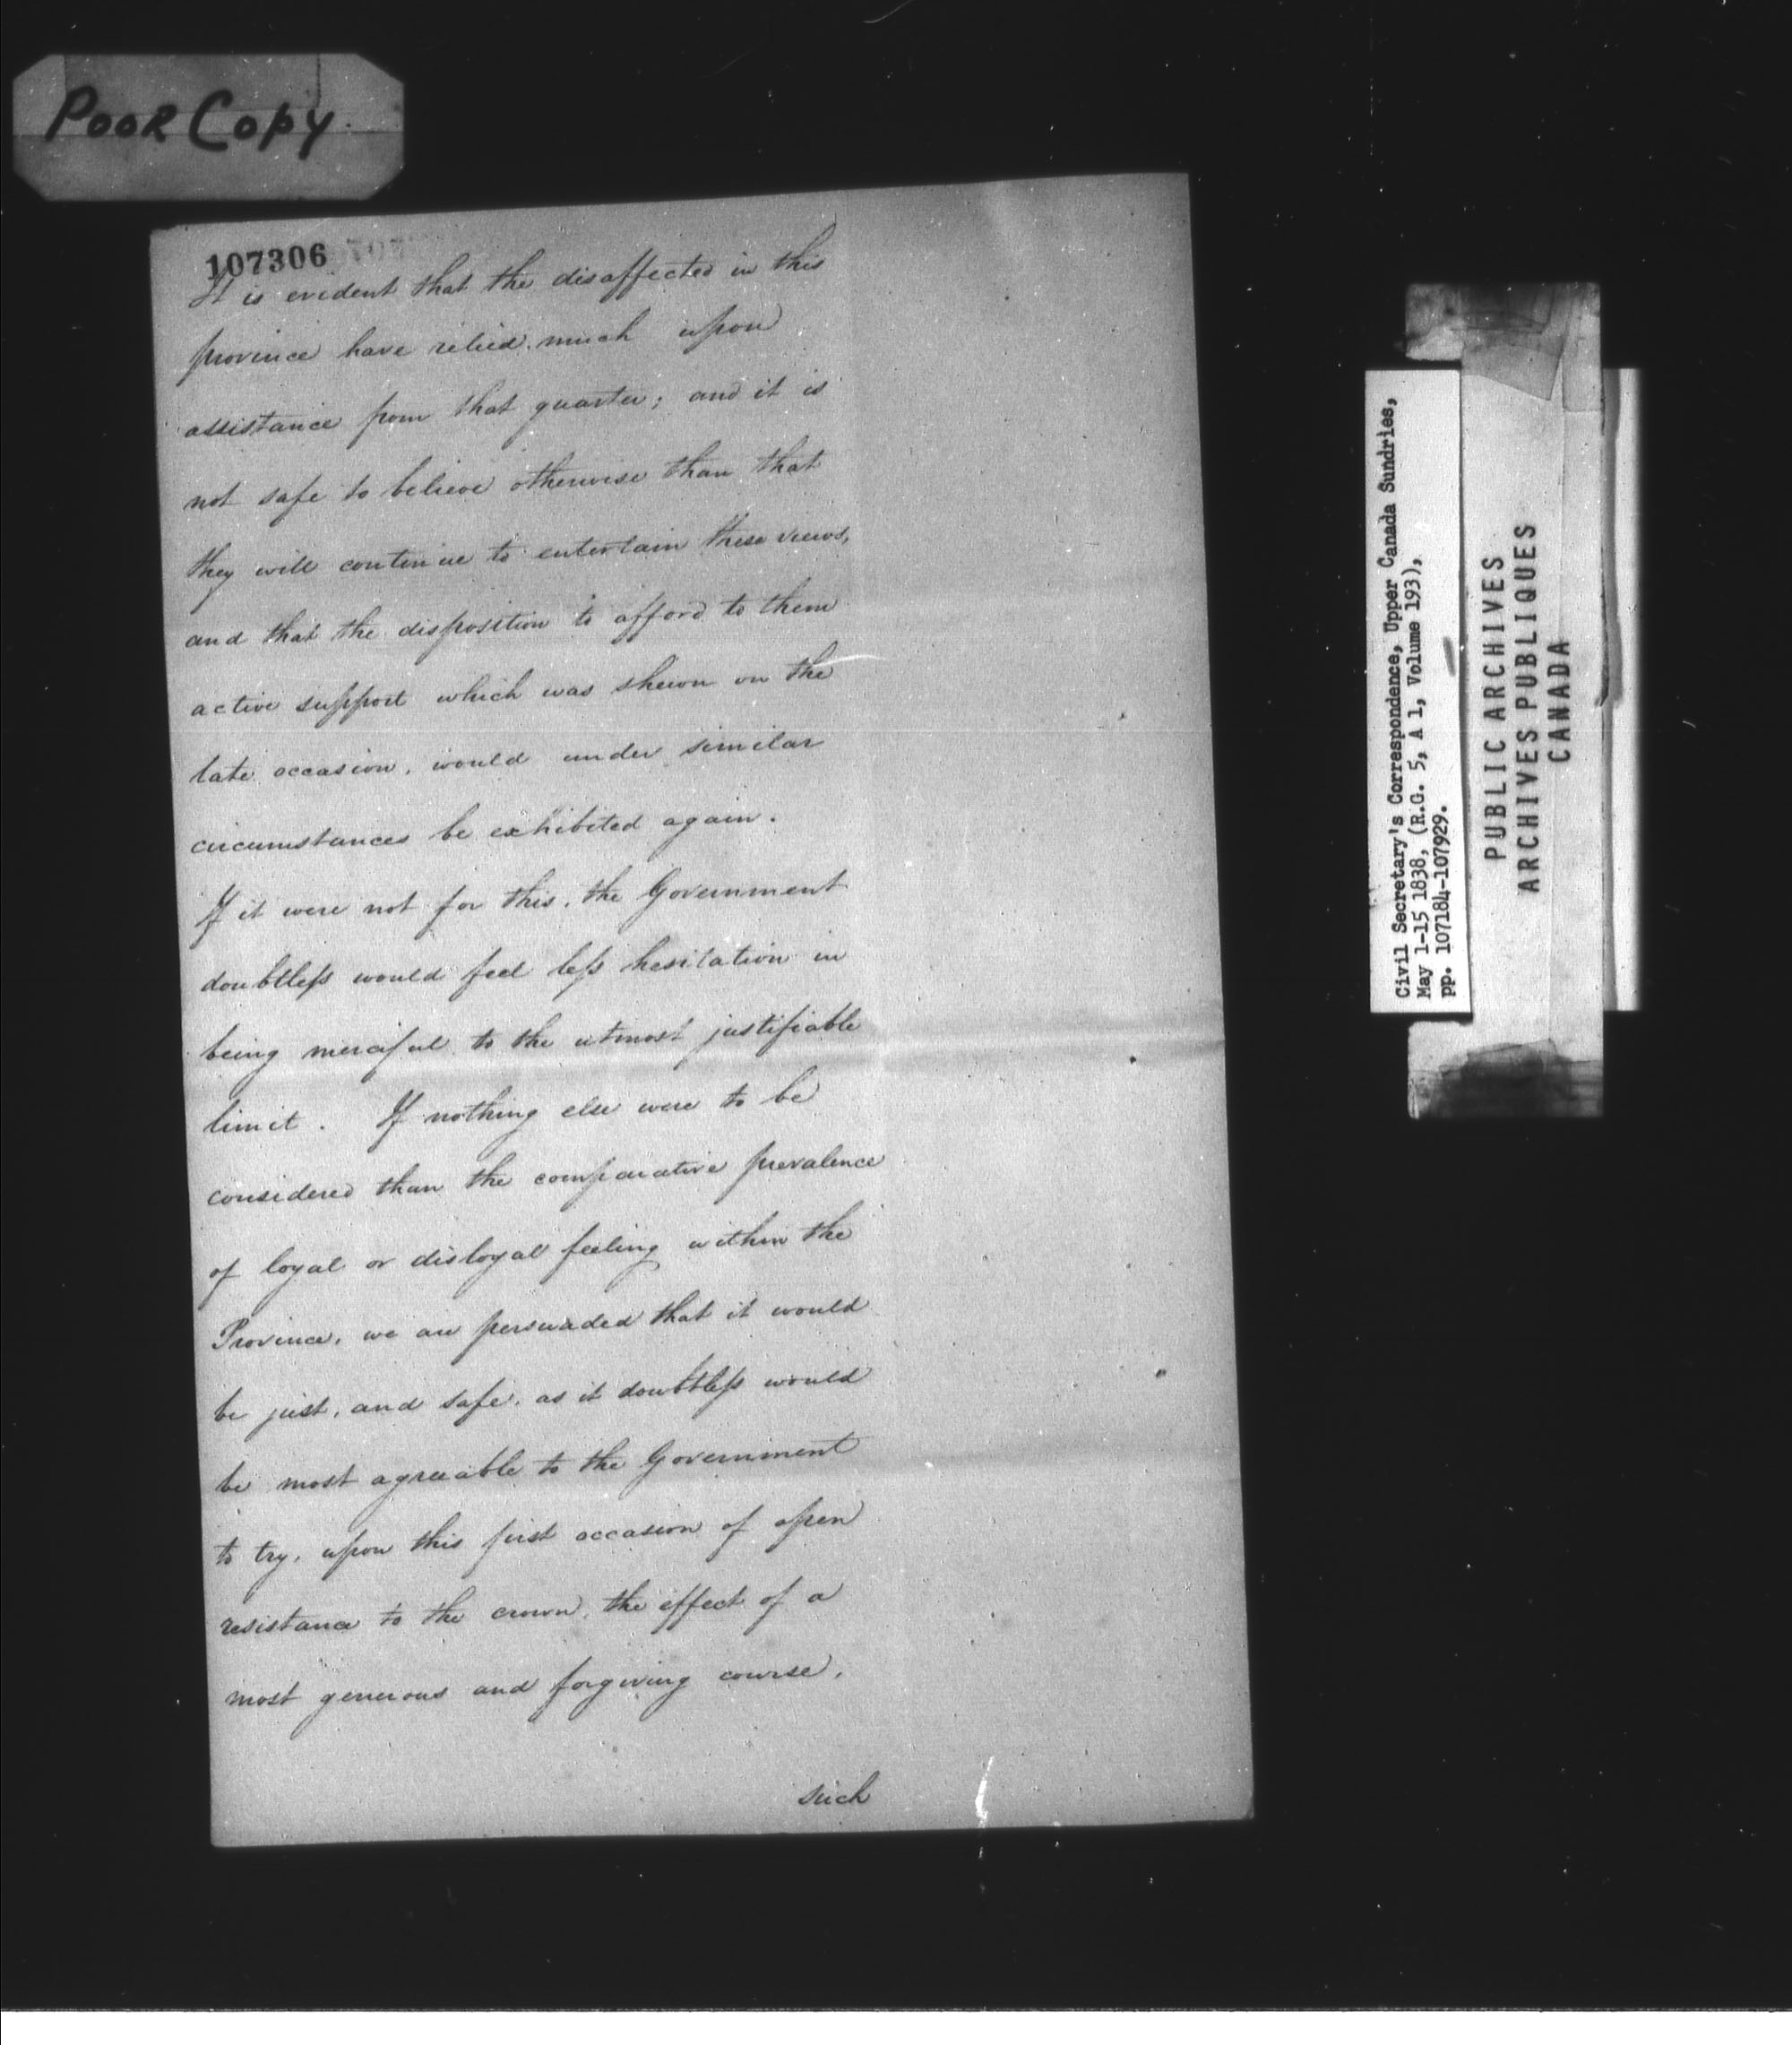 POOR COPY.
107306
It is evident that the disaffected in this
province have relied much upon
assistance from that quarter; and it is
not safe to believe otherwise than that
they will continue to entertain these views,
and that the disposition to afford to them
active support which was shewn on the
late occasion, would under similar
circumstances be exhibited again.
If it were not for this, the Government
doubtless would feel less hesitation in
being merciful to the utmost justifiable
limit. If nothing else were to be
considered than the comparative prevalence
of loyal or disloyal feeling within the
Province, we are persuaded that it would
be just, and safe, as it doubtless would
be most agreeable to the Government
to try, upon this first occasion of open
resistance to the crown, the effect of a
most generous and forgiving course,
such
Civil Secretary's Correspondence, Upper Canada Sundries,
May 1-15 1838, (R.G. 5, A 1, Volume 193),
pp. 107184-107929.
PUBLIC ARCHIVES
ARCHIVES PUBLIQUES
CANADA